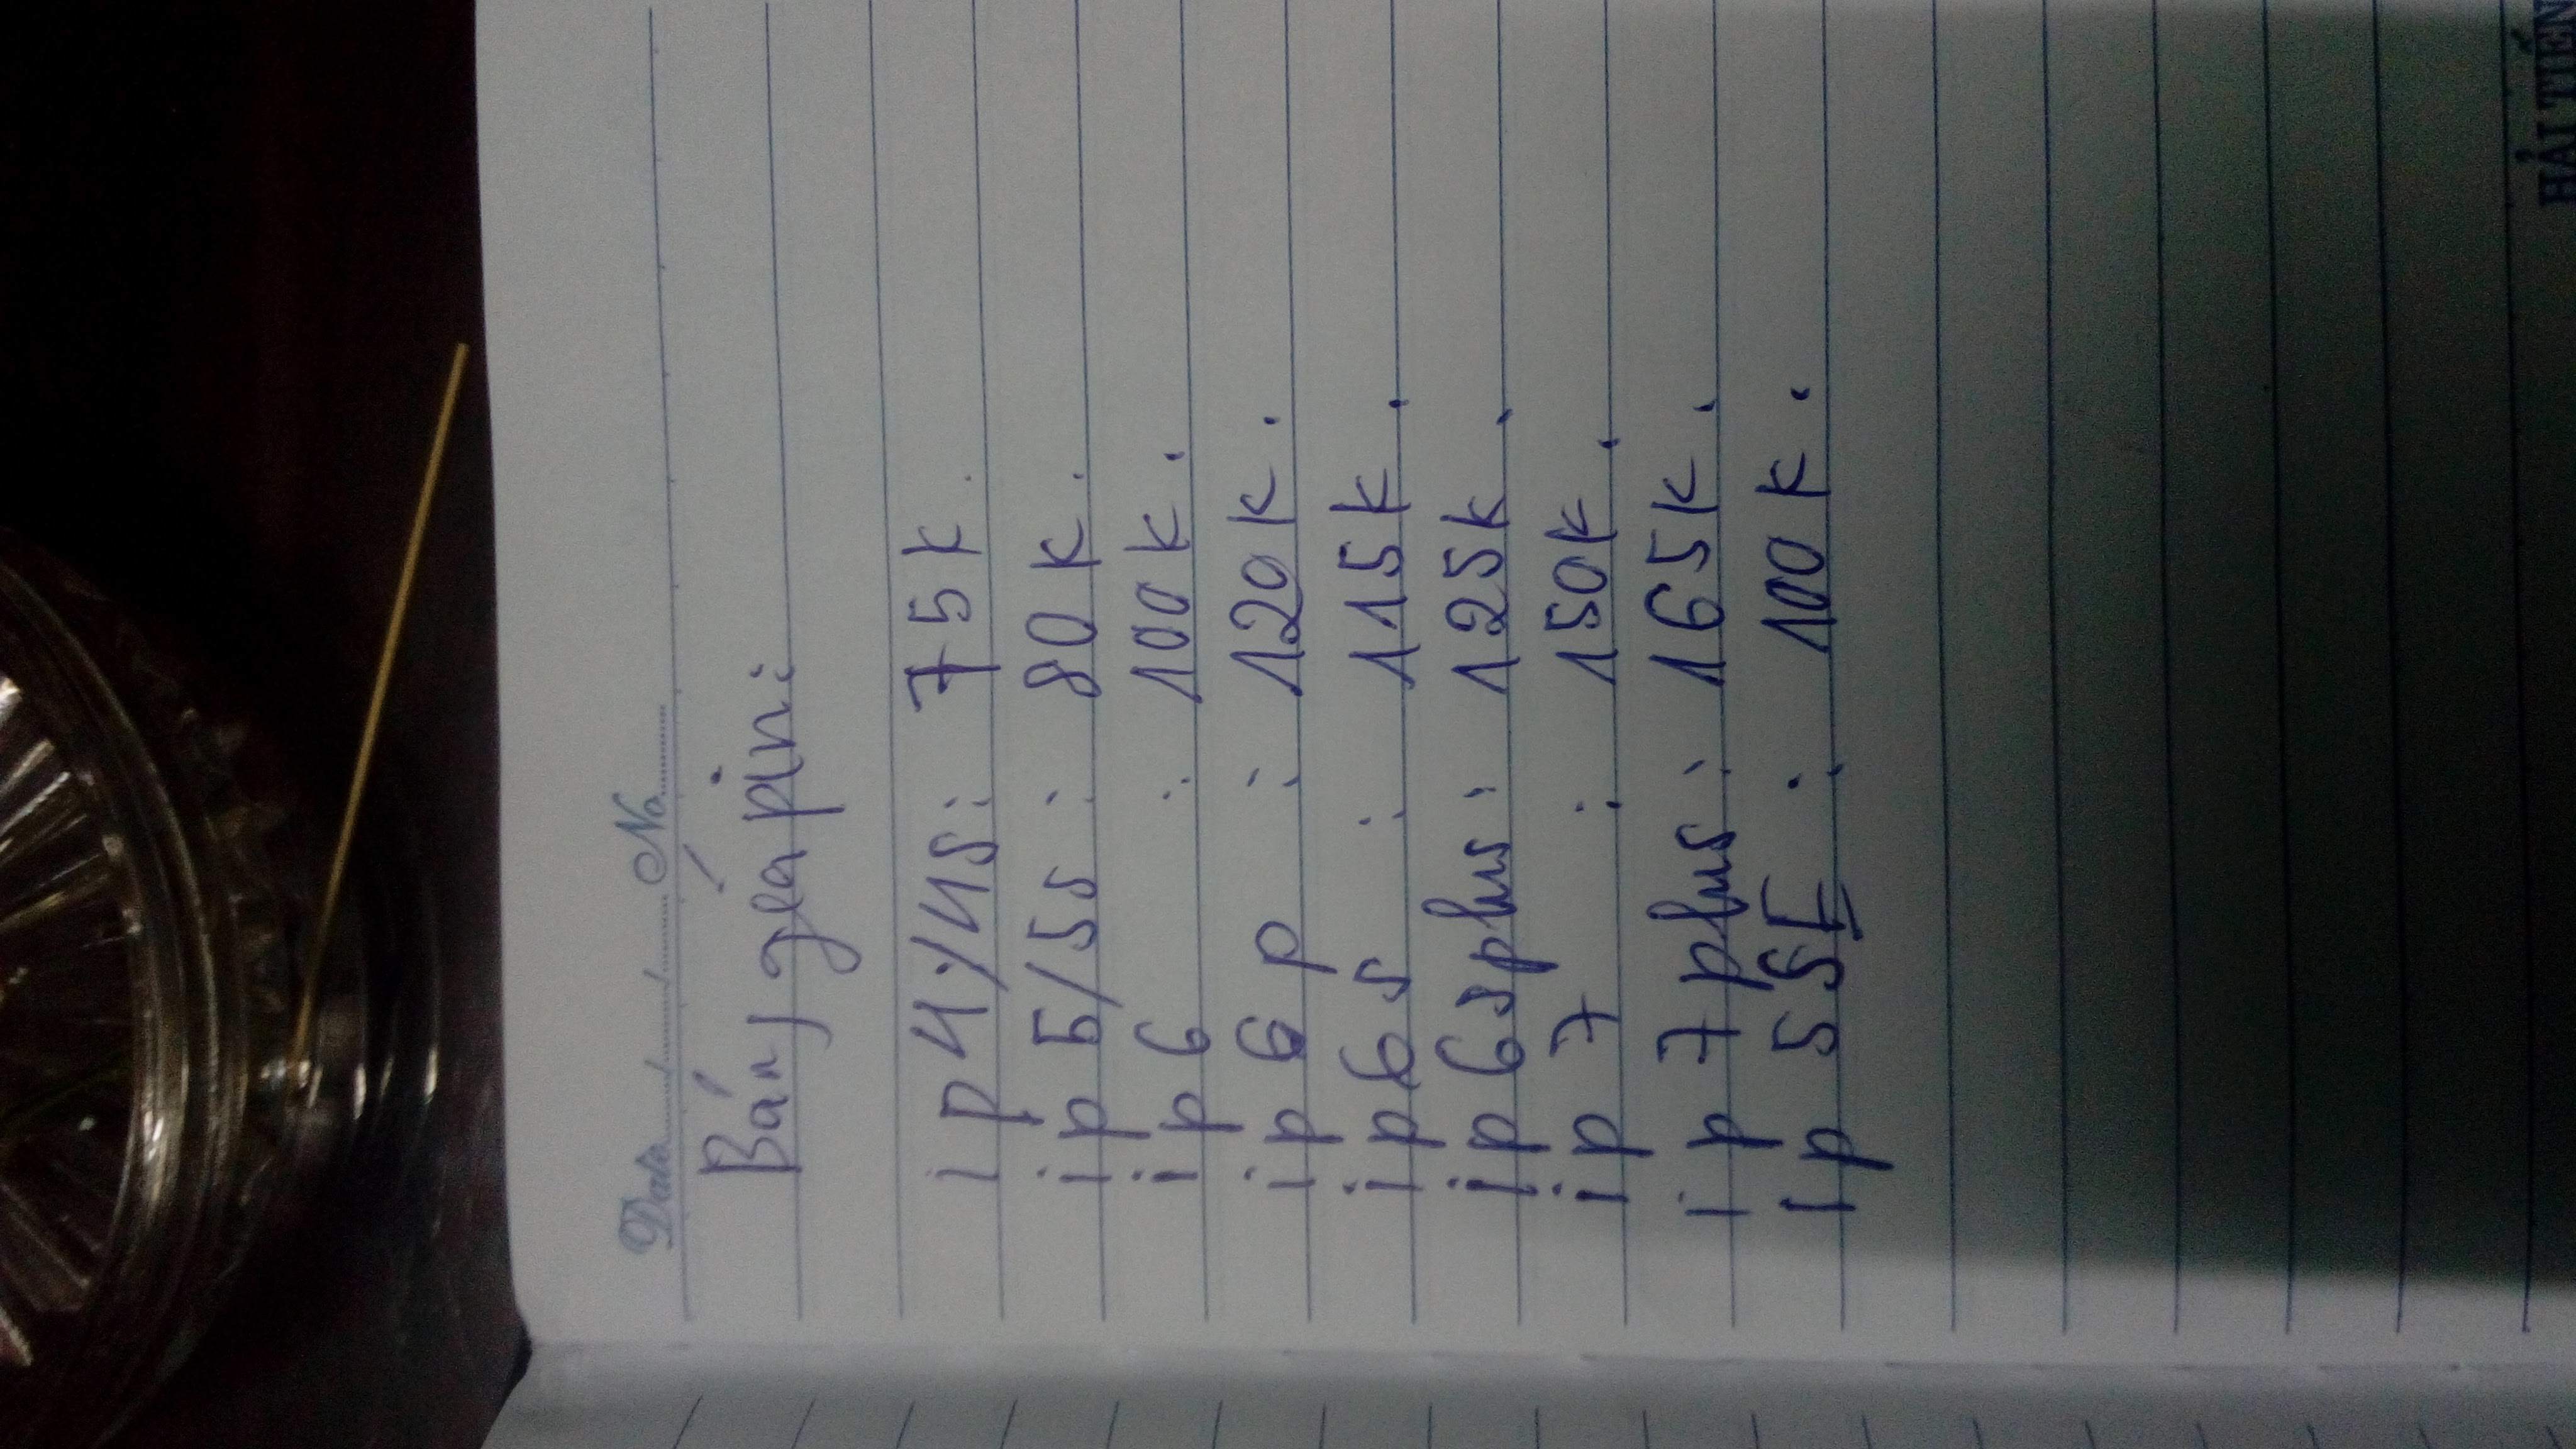 Date........./........./......... No..........
Bảng giá pin:
ip 4/4s: 75k.
ip 5/5s : 80k.
ip 6 : 100k.
ip 6 p : 120k.
ip 6s : 115k.
ip 6splus : 125k.
ip 7 : 150k.
ip 7plus : 165k.
ip 5 SE : 100k.
HẢI TIẾN